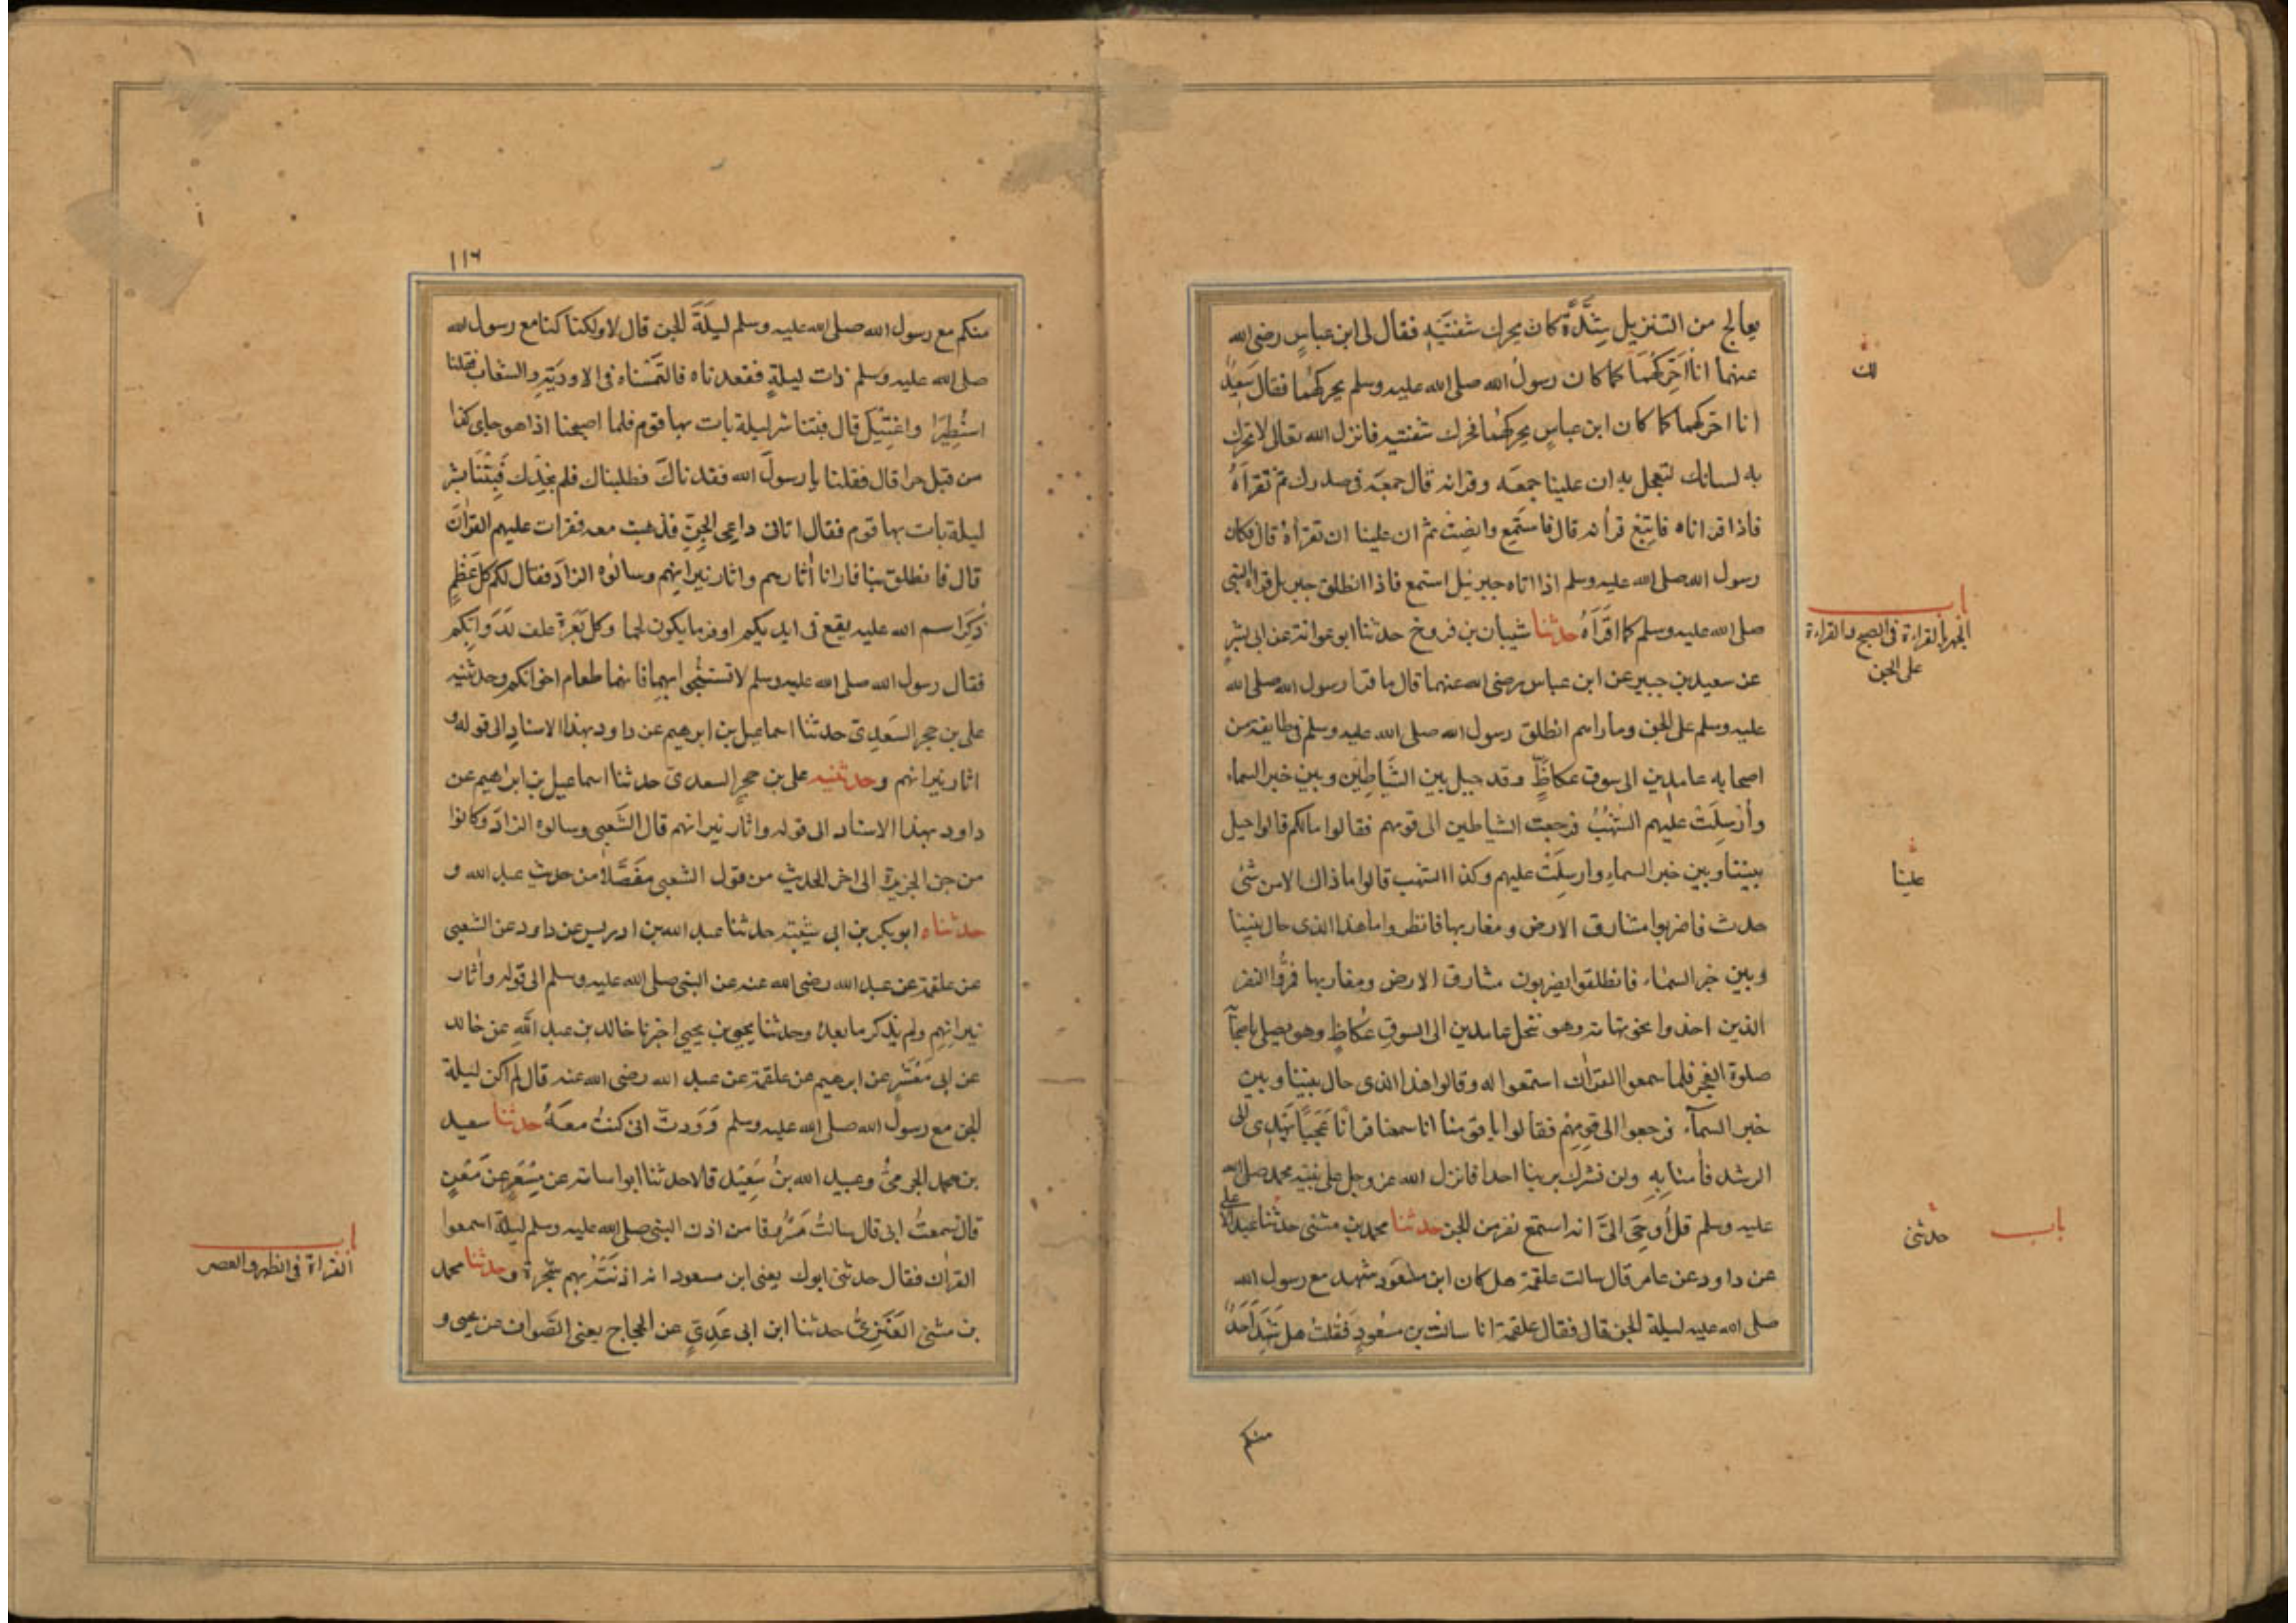 يعالج من التنزيل شِدَّةً كان يحرك شفتَيْهِ فقال لى ابن عباسٍ رضى الله
عنهما انا اُحَرِّكهُمَا كما كان رسولُ الله صلى الله عليه وسلم يحركهُما فقال سَعِيدٌ
لك
انا احركهما كما كان ابن عباسٍ يحركهُما فحرك شفتيه فانزل الله تعالى لا تحرك
به لسانك لتعجل به ان علينا جمعَه وقرانه قال جمعَه فى صدرك ثم تقرأَهُ
فاذا قراناه فاتبِعْ قرأنه قال فاستَمِع وانصِتْ ثم ان علينا ان تقرأهُ قال فكان
رسول الله صلى الله عليه وسلم اذا اتاه جبرئيل استمع فاذا انطلق جبريل قراه النبى
صلى الله عليه وسلم كما اقرَأهُ حدثنا شيبان بن فروخ حدثنا ابو عوانة عن ابى بِشْرٍ
باب
الجهر بالقراءة فى الصبح والقراءة
على الجن
عن سعيد بن جبير عن ابن عباس رضى الله عنهما قال ما قرا رسول الله صلى الله
عليه وسلم على الجن وما راهم انطلق رسول الله صلى الله عليه وسلم فى طايفة من
اصحابه عامدين الى سوق عكاظٍ وقد حيل بين الشَّيَاطِيْن وبين خبر السماء
وأُرْسِلَتْ عليهم الشُّهُبُ فرجعت الشياطين الى قومهم فقالوا مالكم قالوا حيل
بيننا وبين خبر السماء وارسِلَتْ عليهم وكذا الشهب قالوا ما ذاك الا من شئ
علينا
حدث فاضربوا مشارق الارض ومغاربها فانظروا ما هذا الذى حال بيننا
وبين خبر السماء فانطلقوا يضربون مشارق الارض ومغاربها فمَرُّوا النفر
الذين اخذوا نحو تهامة وهو بنخل عامدين الى السوقِ عُكاظٍ وهو يصلى باصحابه
صلوة الفجر فلما سمعوا القران استمعوا له وقالوا هذا الذى حال بيننا وبين
خبر السمآء فرجعوا الى قومِهِم فقالوا يا قومنا انا سمعنا قرأنًا عَجَبًا يَهْدِى الى
الرشد فأمنا بِهِ ولن نشرك بربنا احدا فانزل الله عز وجل على نبيّه محمد صلى الله
عليه وسلم قل اُوحِىَ الىَّ انه استمع نفر من الجن حدثنا محمد بن مثنى حدثنا عبد الاعلى
باب حدثنى
عن داود عن عامر قال سالت علقمة هل كان ابن مَسْعُود شهد مع رسول الله
صلى الله عليه ليلة الجن قال فقال علقمة انا سالت بن مسْعُودٍ فقلت هل شَهِدَ اَحَدٌ
منكم
١١٦
منكم مع رسول الله صلى الله عليه وسلم ليلَةَ الجن قال لا ولكنا كنا مع رسول الله
صلى الله عليه وسلم ذات ليلةٍ ففقدناه فالتمَسْناه فى الاوديَةِ والشعاب فقلنا
استُطِيْرَ او اغتِيْل قال فبتنا شر ليلة بات بها قوم فلما اصبحنا اذا هو جاى كذا
من قِبَل حرا قال فقلنا يا رسولَ الله فقدناكَ فطلبناك فلم نجدك فَبِتْنَا بشر
ليلة بات بها قوم فقال اتانى داعِى الجِنّ فذهبت معه فقرات عليهم القرانَ
قال فانطلق بنا فارانا أثارهم واثار نيرانهم وسالوه الزادَ فقال لكم كل عَظْمٍ
ذُكِرَ اسم الله عليه يقع فى ايديكم اوفر ما يكون لحما وكل بَعْرَة علف لدَوَابّكم
فقال رسول الله صلى الله عليه وسلم لا تستنجى ابهما فانهما طعام اخوانكم وحدثنيه
على بن حجر السَعدِىّ حدثنا اسماعيل بن ابرهيم عن داود بهذا الاسناد الى قوله و
اثار نيرانهم وحدثنيه على بن حجرٍ السعدىّ حدثنا اسماعيل بن ابراهيم عن
داود بهذا الاسناد الى قوله واثار نيرانهم قال الشَعبِى وسالوه الزادَ وكانوا
من جن الجزيرة الى اخر الحديث من قول الشعبى مفَصَّلاً من حديث عبد الله و
حدثناه ابو بكر بن ابى شيْبَة حدثنا عبد الله بن ادريس عن داود عن الشعبى
عن علقمة عن عبد الله رضى الله عنه عن النبى صلى الله عليه وسلم الى قوله وأثار
نيرانِهِم ولم يذكر ما بعدهُ وحدثنا يحيى بن يحيى اخبرنا خالد بن عبد اللهِ عن خالد
عن ابى مَعْشَرٍ عن ابرهيم عن علقمة عن عبد الله رضى الله عنه قال لم اكن ليلة
الجن مع رسولِ الله صلى الله عليه وسلم وَوَدِدت انى كنتُ معَهُ حدثنا سعيد
بن محمد الجرمىُّ وعبيد الله بنُ سَعِيْد قالا حدثنا ابو اسامة عن مِسْعَرٍ عن مَعْنٍ
قال سمعتُ ابى قال سالتُ مَسْرُوقا من اذن النبى صلى الله عليه وسلم ليلة اسمعوا
باب
القراة فى الظهر والعصر
القران فقال حدثنى ابوك يعنى ابن مسعود انه اذنَتْهُ بهم شَجَرَة وحدثنا محمد
بن مثنى العَنَزِىُّ حدثنا ابن ابى عَدِىّ عن الحجاج يعنى الصَّواف عن يحيى و